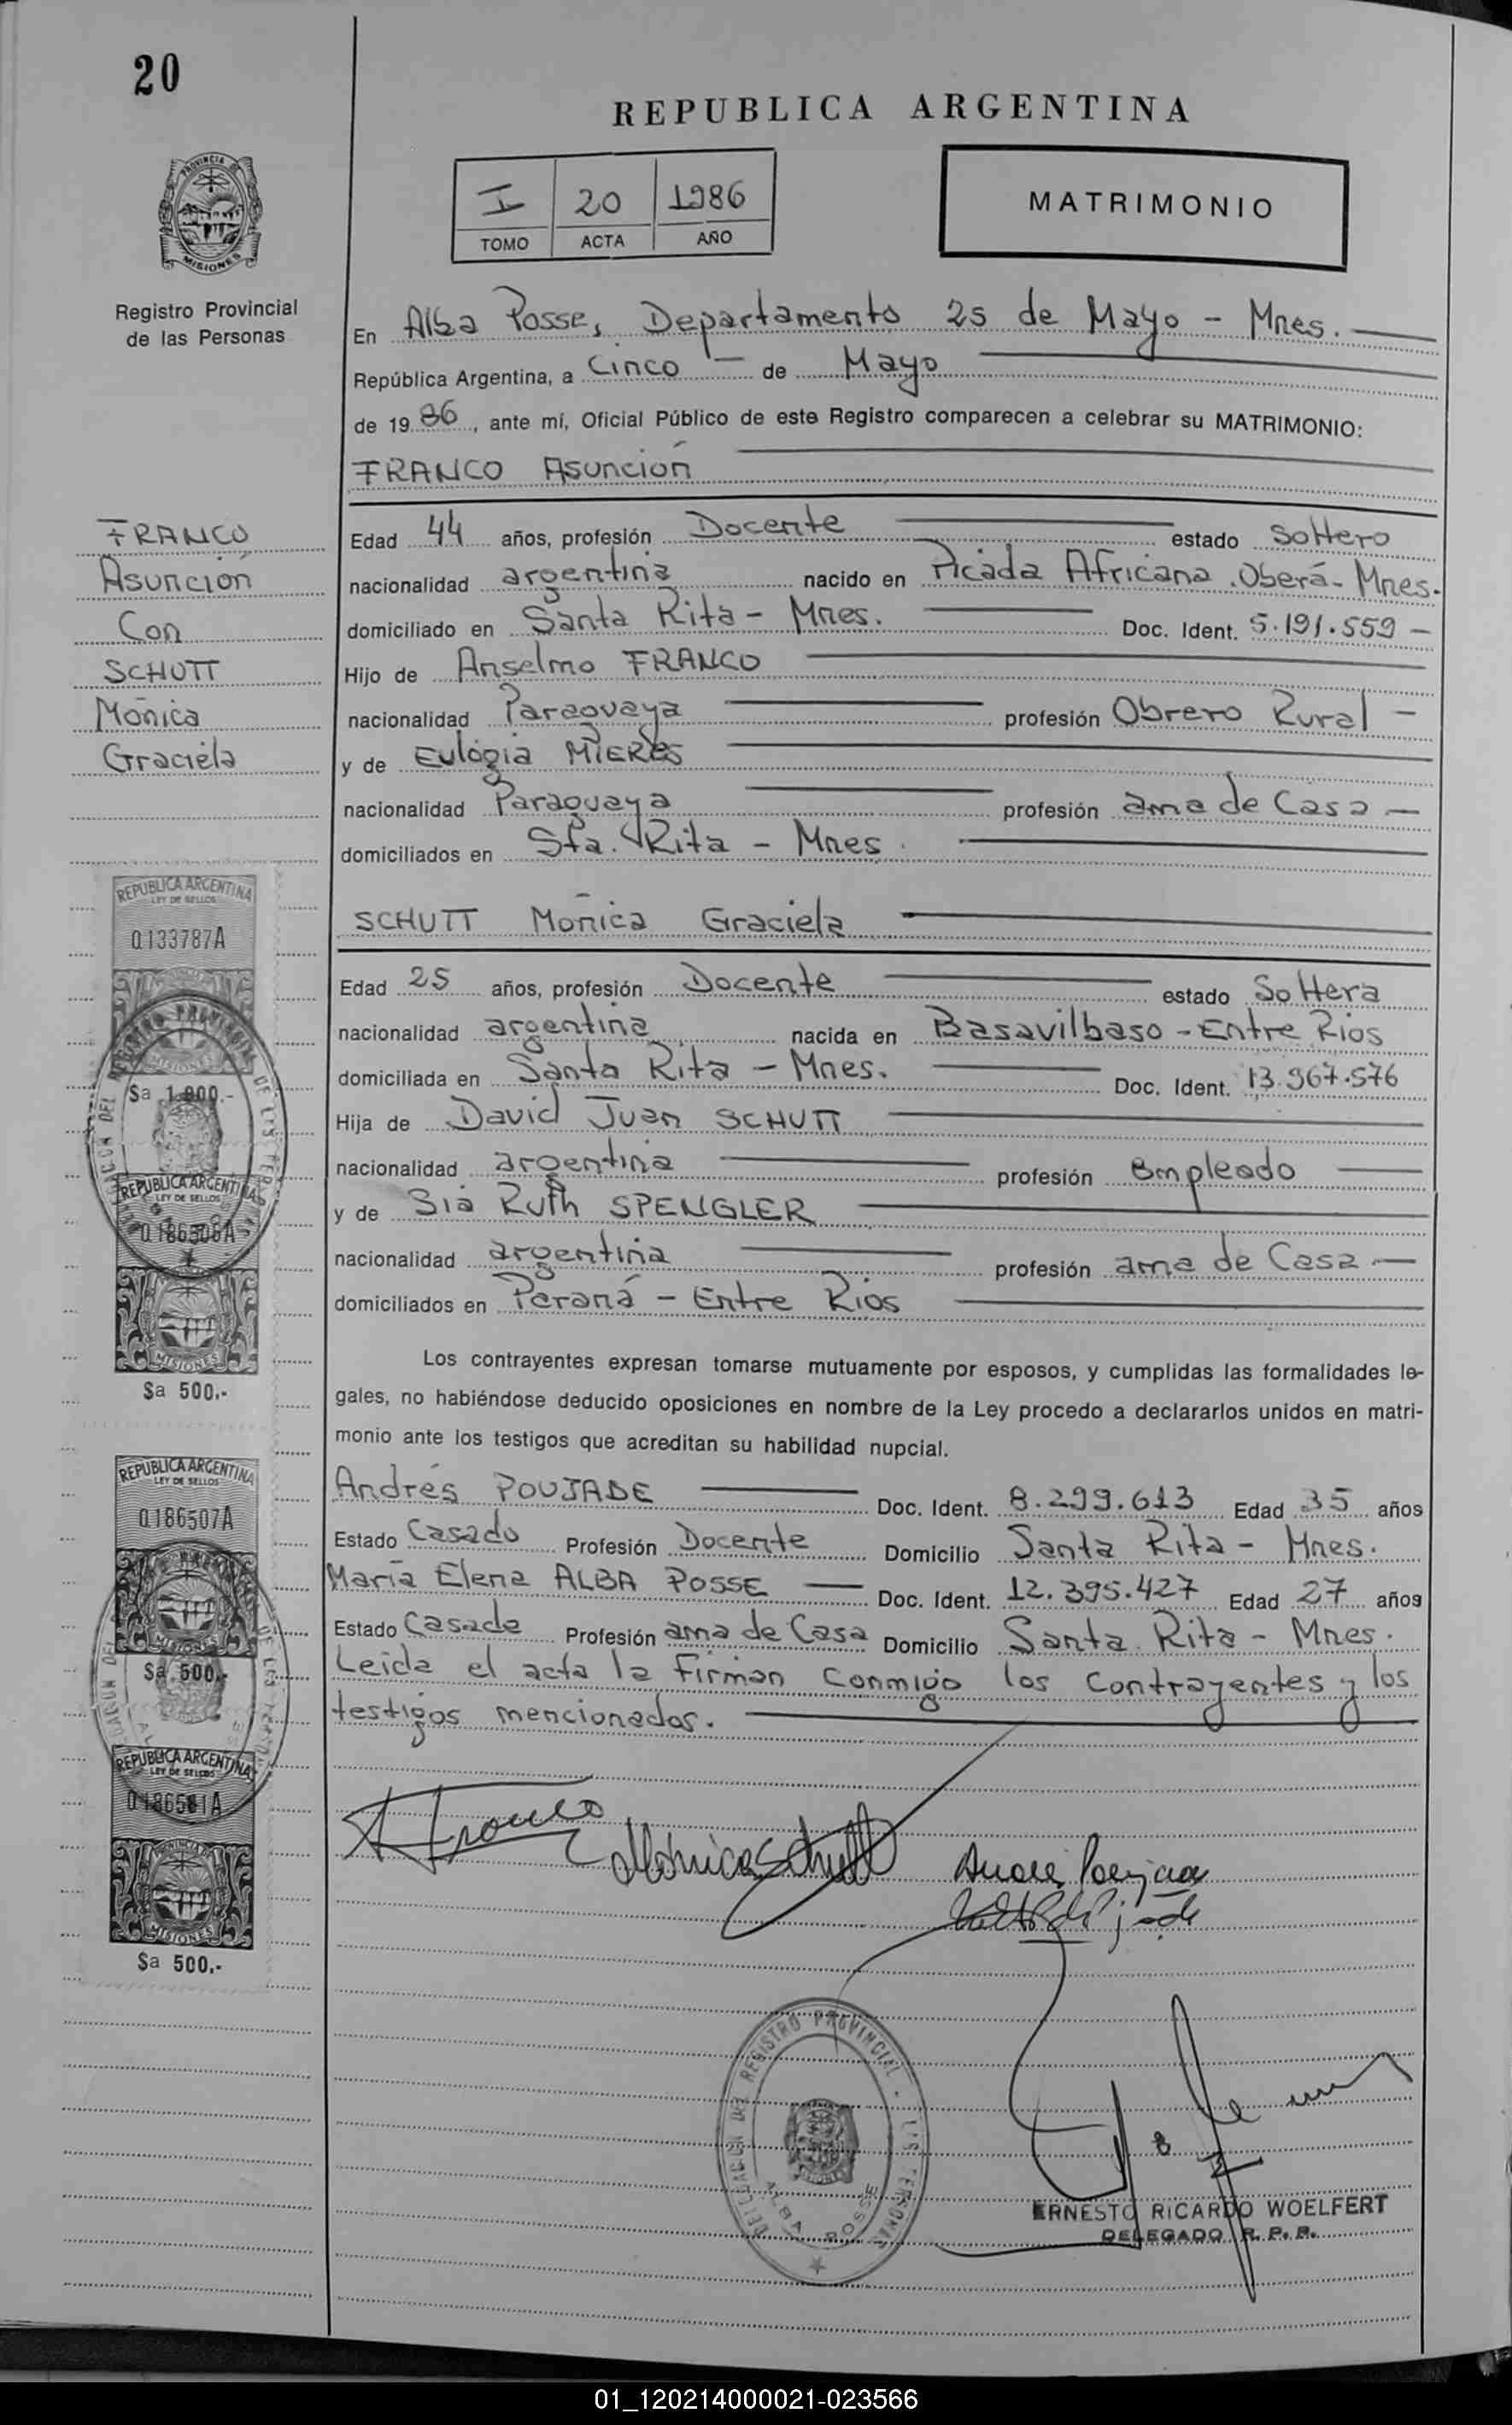 20
REPUBLICA ARGENTINA
I 20 1986
TOMO ACTA AÑO
MATRIMONIO
PROVINCIA DE
MISIONES
Registro Provincial
de las Personas
En Alba Posse, Departamento 25 de Mayo - Mnes.
República Argentina, a Cinco de Mayo
de 19 86, ante mí, Oficial Público de este Registro comparecen a celebrar su MATRIMONIO:
FRANCO Asunción
Edad 44 años, profesión Docente estado Soltero
nacionalidad argentina nacido en Picada Africana. Oberá- Mnes.
domiciliado en Santa Rita - Mnes. Doc. Ident. 5.191.559 -
Hijo de Anselmo FRANCO
nacionalidad Paraguaya profesión Obrero Rural -
y de Eulogia MIERES
nacionalidad Paraguaya profesión ama de Casa -
domiciliados en Sta. Rita - Mnes.
SCHUTT Mónica Graciela
Edad 25 años, profesión Docente estado Soltera
nacionalidad argentina nacida en Basavilbaso - Entre Rios
domiciliada en Santa Rita - Mnes. Doc. Ident. 13.967.576
Hija de David Juan SCHUTT
nacionalidad argentina profesión Empleado
y de Sia Ruth SPENGLER
nacionalidad argentina profesión ama de Casa -
domiciliados en Paraná - Entre Rios
Los contrayentes expresan tomarse mutuamente por esposos, y cumplidas las formalidades le-
gales, no habiéndose deducido oposiciones en nombre de la Ley procedo a declararlos unidos en matri-
monio ante los testigos que acreditan su habilidad nupcial.
Andrés POUJADE Doc. Ident. 8.299.613 Edad 35 años
Estado Casado Profesión Docente Domicilio Santa Rita - Mnes.
María Elena ALBA POSSE Doc. Ident. 12.395.427 Edad 27 años
Estado Casada Profesión ama de Casa Domicilio Santa Rita - Mnes.
Leida el acta la Firman Conmigo los Contrayentes y los
testigos mencionados.
FRANCO
Asunción
Con
SCHUTT
Mónica
Graciela
REPUBLICA ARGENTINA
LEY DE SELLOS
0.133787A
MISIONES
$a 1.000.-
REPUBLICA ARGENTINA
LEY DE SELLOS
MISIONES
$a 500.-
REPUBLICA ARGENTINA
LEY DE SELLOS
0.186507A
MISIONES
$a 500.-
REPUBLICA ARGENTINA
LEY DE SELLOS
MISIONES
$a 500.-
A Franco
Mónica Schutt
DELEGACION DEL REGISTRO PROVINCIAL
ALBA POSSE
ERNESTO RICARDO WOELFERT
DELEGADO R. P. P.
01_120214000021-023566